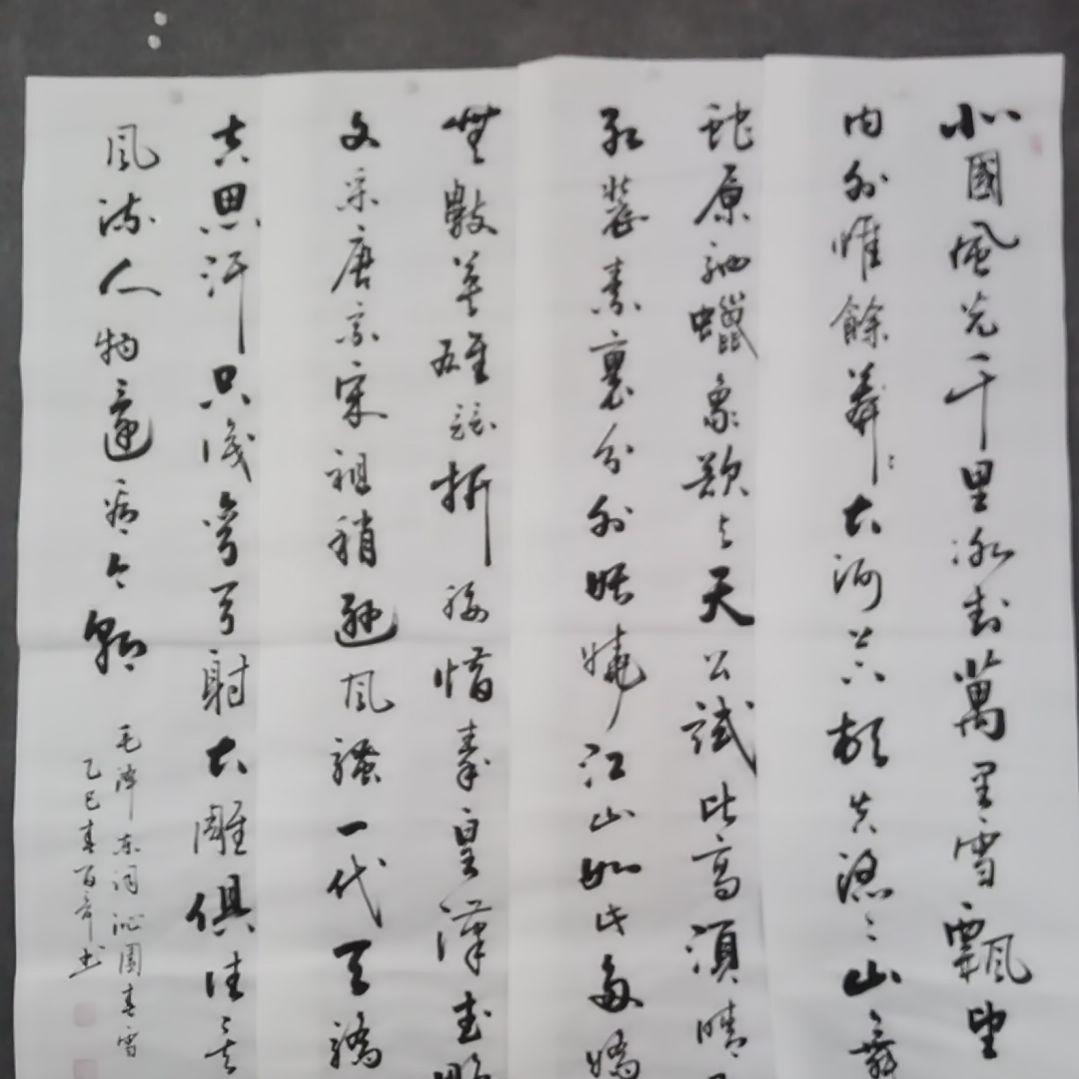 北國風光千里冰封萬里雪飄望
内外惟餘莽〻大河上下頓失滔〻山舞
蛇原馳蠟象欲与天公試比高須晴
紅裝素裹分外妖嬈江山如此多嬌
無數英雄競折腰惜秦皇漢武
文采唐宗宋祖稍遜風騷一代天驕
吉思汗只識彎弓射大雕俱往矣
風流人物還看今朝
毛澤東詞沁園春雪
乙巳春百书